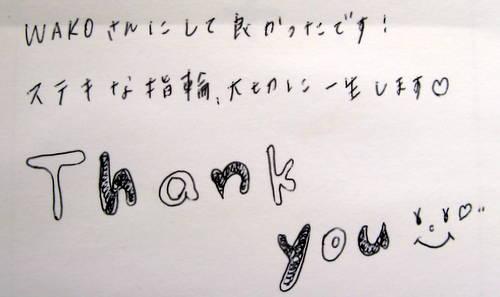 WAKOさんにして良かったです!
ステキな指輪、大切に一生します♡
Thank
you